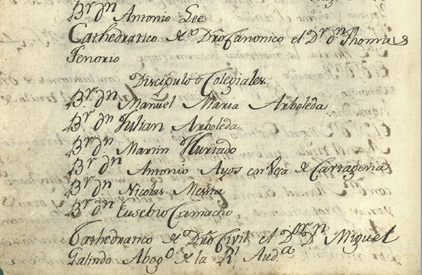 Br. Dn. Antonio Lee
Cathedratico de Dro Canonico el Dr. dn. Thomas
Tenorio
Discipulos Colegiales.
Br. dn. Manuel Maria Arboleda
Br. dn. Julian Arboleda
Br. dn. Martin Hurtado
Br. dn. Antonio Ayos de Cartagena
Br. dn. Nicolas
Br. dn. Eusebio Camacho
Cathedratico de Dro Civil el Dor. Dn. Miguel
Galindo Abogo. de la Rl. Auda.